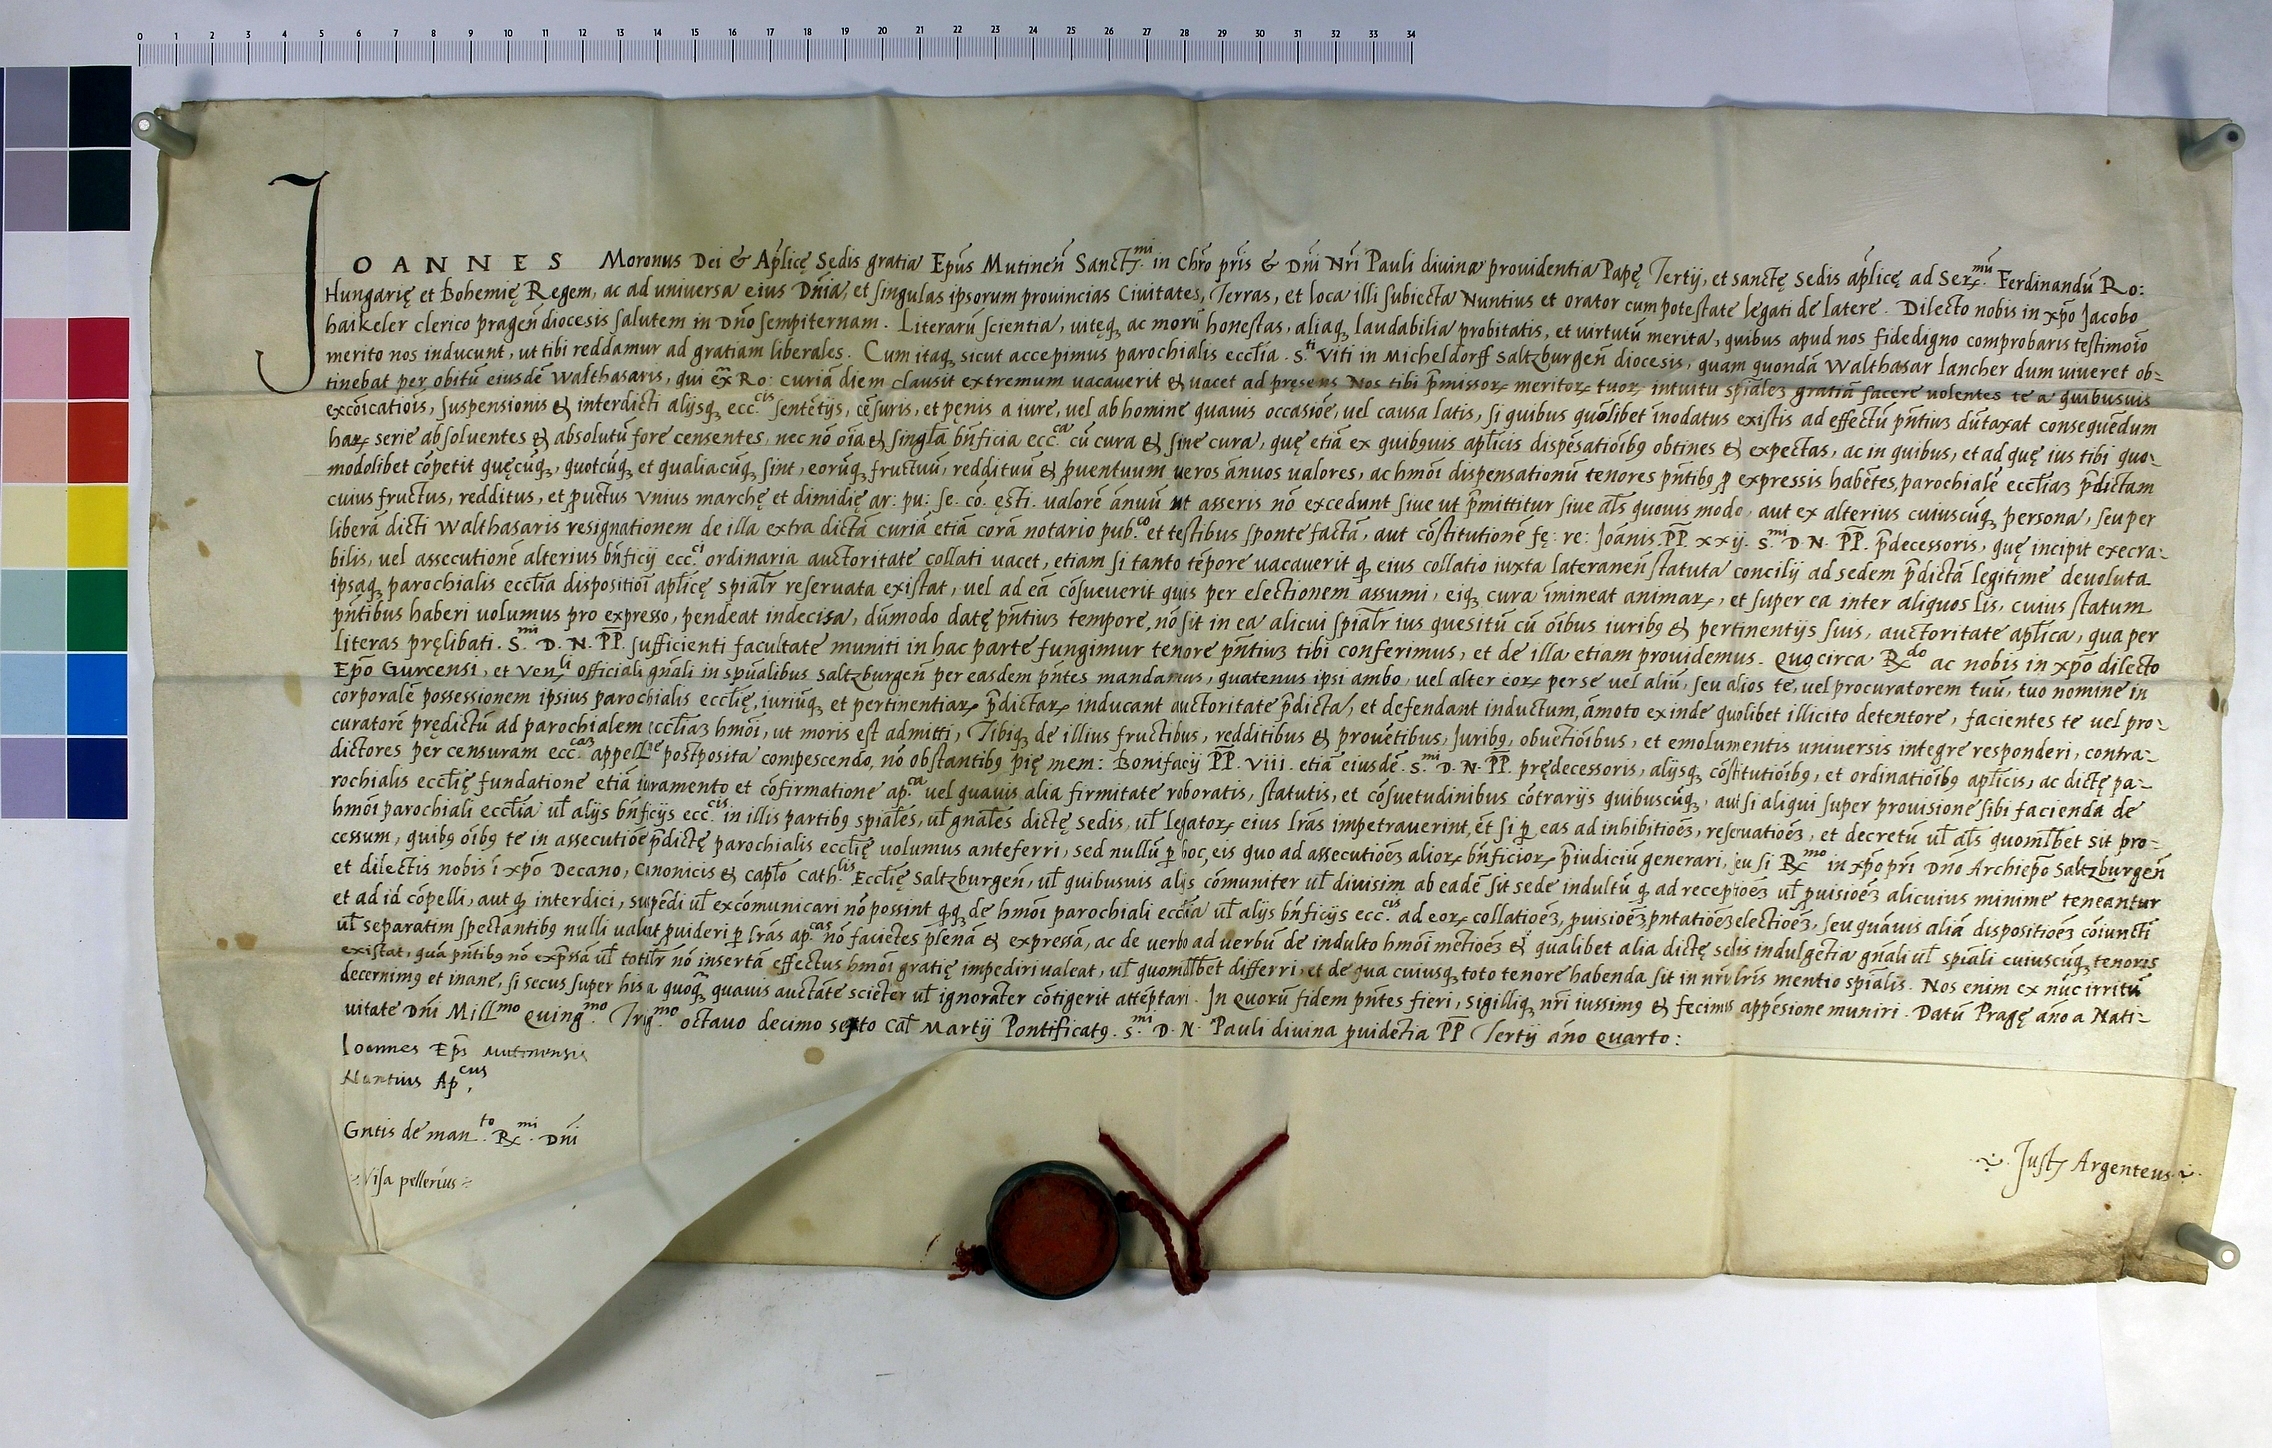 0 1 2 3 4 5 6 7 8 9 10 11 12 13 14 15 16 17 18 19 20 21 22 23 24 25 26 27 28 29 30 31 32 33 34
JOANNES Moronus Dei & Aplicę Sedis gratia Epūs Mutineñ Sanctmi in Chrō pris & Dñi Nri Pauli diuina prouidentia Papę Tertij, et sanctę Sedis aplicę ad Sermū Ferdinandū Ro:
Hungarię et Bohemię Regem, ac ad uniuersa eius Dñia, et singulas ipsorum prouincias Ciuitates, Terras, et loca illi subiecta Nuntius et orator cum potestate legati de latere. Dilecto nobis in xpō Jacobo
haikeler clerico prageñ diocesis salutem in Dño sempiternam. Literarū scientia, uitęq, ac morū honestas, aliaq, laudabilia probitatis, et uirtutū merita, quibus apud nos fidedigno comprobaris testimōio
merito nos inducunt, ut tibi reddamur ad gratiam liberales. Cum itaq, sicut accepimus parochialis ecclia. S.ti Viti in Micheldorff Saltzburgeñ diocesis, quam quondā Walthasar Lancher dum uiueret ob-
tinebat per obitū eiusdē Walthasaris, qui ex̄ Ro: curiā diem clausit extremum uacauerit & uacet ad presens Nos tibi p̄missoꝝ meritoꝝ tuoꝝ intuitu spialeȝ gratiā facere uolentes te a quibusuis
excōicatiōis, suspensionis & interdicti alijsq, ecc.cis sentētijs, cēsuris, et penis a iure, uel ab homine quauis occasiōe, uel causa latis, si quibus quōlibet inodatus existis ad effectū pñtiuȝ dūtaxat consequēdum
haꝝ serie absoluentes & absolutū fore censentes, nec nō oīa & singla bñficia ecc.ca cū cura & sine cura, quę etiā ex quibusuis aplicis dispēsatiōibꝯ obtines & expectas, ac in quibus, et ad quę ius tibi quo-
modolibet cōpetit quęcūq, quotcūq, et qualiacūq, sint, eorūq, fructuū, reddituū & puentuum ueros ānuos ualores, ac hmōi dispensationū tenores pñtibꝯ ꝓ expressis habētes, parochialē eccliaȝ p̄dictam
cuius fructus, redditus, et puētus Vnius marchę et dimidię ar: pu: se. cō. ęsti. ualorē ānuū ut asseris nō excedunt siue ut p̄mittitur siue als quouis modo, aut ex alterius cuiuscūq, persona, seu per
liberā dicti Walthasaris resignationem de illa extra dictā curiā etiā corā notario pub.co et testibus sponte factā, aut cōstitutionē fę: re: Joānis. PP. xxij. S.mi D. N. PP. p̄decessoris, quę incipit execra-
bilis, uel assecutionē alterius bñficij ecc.ci ordinaria auctoritate collati uacet, etiam si tanto tēpore uacauerit ꝙ eius collatio iuxta lateraneñ statuta concilij ad sedem p̄dictā legitime deuoluta
ipsaq, parochialis ecclia dispositiōi aplicę spialr reseruata existat, uel ad eā cōsueuerit quis per electionem assumi, eiq, cura īmineat animaꝝ, et super ea inter aliquos lis, cuius statum
pñtibus haberi uolumus pro expresso, pendeat indecisa, dūmodo datę pñtiuȝ tempore, nō sit in ea alicui spialr ius quesitū cū ōibus iuribꝯ & pertinentijs suis, auctoritate aplica, qua per
literas pręlibati. S.mi D. N. PP. sufficienti facultate muniti in hac parte fungimur tenore pñtiuȝ tibi conferimus, et de illa etiam prouidemus. Quocirca Rdo ac nobis in xpō dilecto
Epō Gurcensi, et Venli officiali gñali in spūalibus Saltzburgeñ per easdem pñtes mandamus, quatenus ipsi ambo, uel alter eoꝝ per se uel aliū, seu alios te, uel procuratorem tuū, tuo nomine in
corporalē possessionem ipsius parochialis ecclię, iuriūq, et pertinentiaꝝ p̄dictaꝝ inducant auctoritate p̄dicta, et defendant inductum, āmoto exinde quolibet illicito detentore, facientes te uel pro-
curatorē prędictū ad parochialem eccliaȝ hmōi, ut moris est admitti, Tibiq, de illius fructibus, redditibus & prouētibus, Juribꝯ, obuētiōibus, et emolumentis uniuersis integre responderi, contra-
dictores per censuram ecc.caȝ appellne postposita compescendo, nō obstantibꝯ pię mem: Bonifacij PP. VIII. etiā eiusdē. S.mi D. N. PP. prędecessoris, alijsq, cōstitutiōibꝯ, et ordinatiōibꝯ aplicis, ac dictę pa-
rochialis ecclię fundatione etiā iuramento et cōfirmatione ap.ca uel quauis alia firmitate roboratis, statutis, et cōsuetudinibus cōtrarijs quibuscūq, aut si aliqui super prouisione sibi facienda de
hmōi parochiali ecclia ul alijs bñficijs ecc.cis in illis partibꝯ spiales, ul gñales dictę sedis, ul legatoꝝ eius lras impetrauerint, et si ꝑ eas ad inhibitiōeȝ, reseruatiōeȝ, et decretū ul als quomlbet sit pro-
cessum, quibꝯ ōibꝯ te in assecutiōe p̄dictę parochialis ecclię uolumus anteferri, sed nullū ꝑ hoc, eis quo ad assecutiōeȝ alioꝝ bñficioꝝ p̄iudiciū generari, seu si Rmo in xpō pri Dño Archiepō Saltzburgeñ
et dilectis nobis ī xpō Decano, Canonicis & caplo Cath.lis Ecclię Saltzburgeñ, ul quibusuis alijs cōmuniter ul diuisim ab eadē sit sede indultū ꝙ ad receptiōeȝ ul puisiōeȝ alicuius minime teneantur
et ad id cōpelli, aut ꝙ interdici, suspēdi ul excōmunicari nō possint ꝙq, de hmōi parochiali ecclia ul alijs bñficijs ecc.cis ad eoꝝ collatiōeȝ, puisiōeȝ, pñtatiōeȝ electiōeȝ, seu quāuis aliā dispositiōeȝ cōiuncti
ul separatim spectantibꝯ nulli ualeat puideri ꝑ lras ap.cas nō faciētes plenā & expressā, ac de uerbo ad uerbū de indulto hmōi mētiōeȝ & qualibet alia dictę sedis indulgētia gñali ul spiali cuiuscūq, tenoris
existat, quā pñtibꝯ nō exp̄ssā ul totilr nō insertā effectus hmōi gratię impediri ualeat, ul quomlbet differri, et de qua cuiusq, toto tenore habenda sit in nris lris mentio spialis. Nos enim ex nūc irritū
decernimꝯ et inane, si secus super his a quoq, quauis auctate sciēter ul ignorāter cōtigerit attēptari. In quorū fidem pñtes fieri, sigilliq, nri iussimꝯ & fecimus appēsione muniri. Datū Pragę año a Nati-
uitate Dñi Millmo Quingmo. Trigmo octauo decimo sexto Cal Martij Pontificatꝯ. S.mi D. N. Pauli diuina puidētia PP Tertij año Quarto:
Ioannes Epūs Mutinensis
Nuntius Apcus,
Grtis de man.to R.mi Dñi
Visa pellerius
Just Argenteus